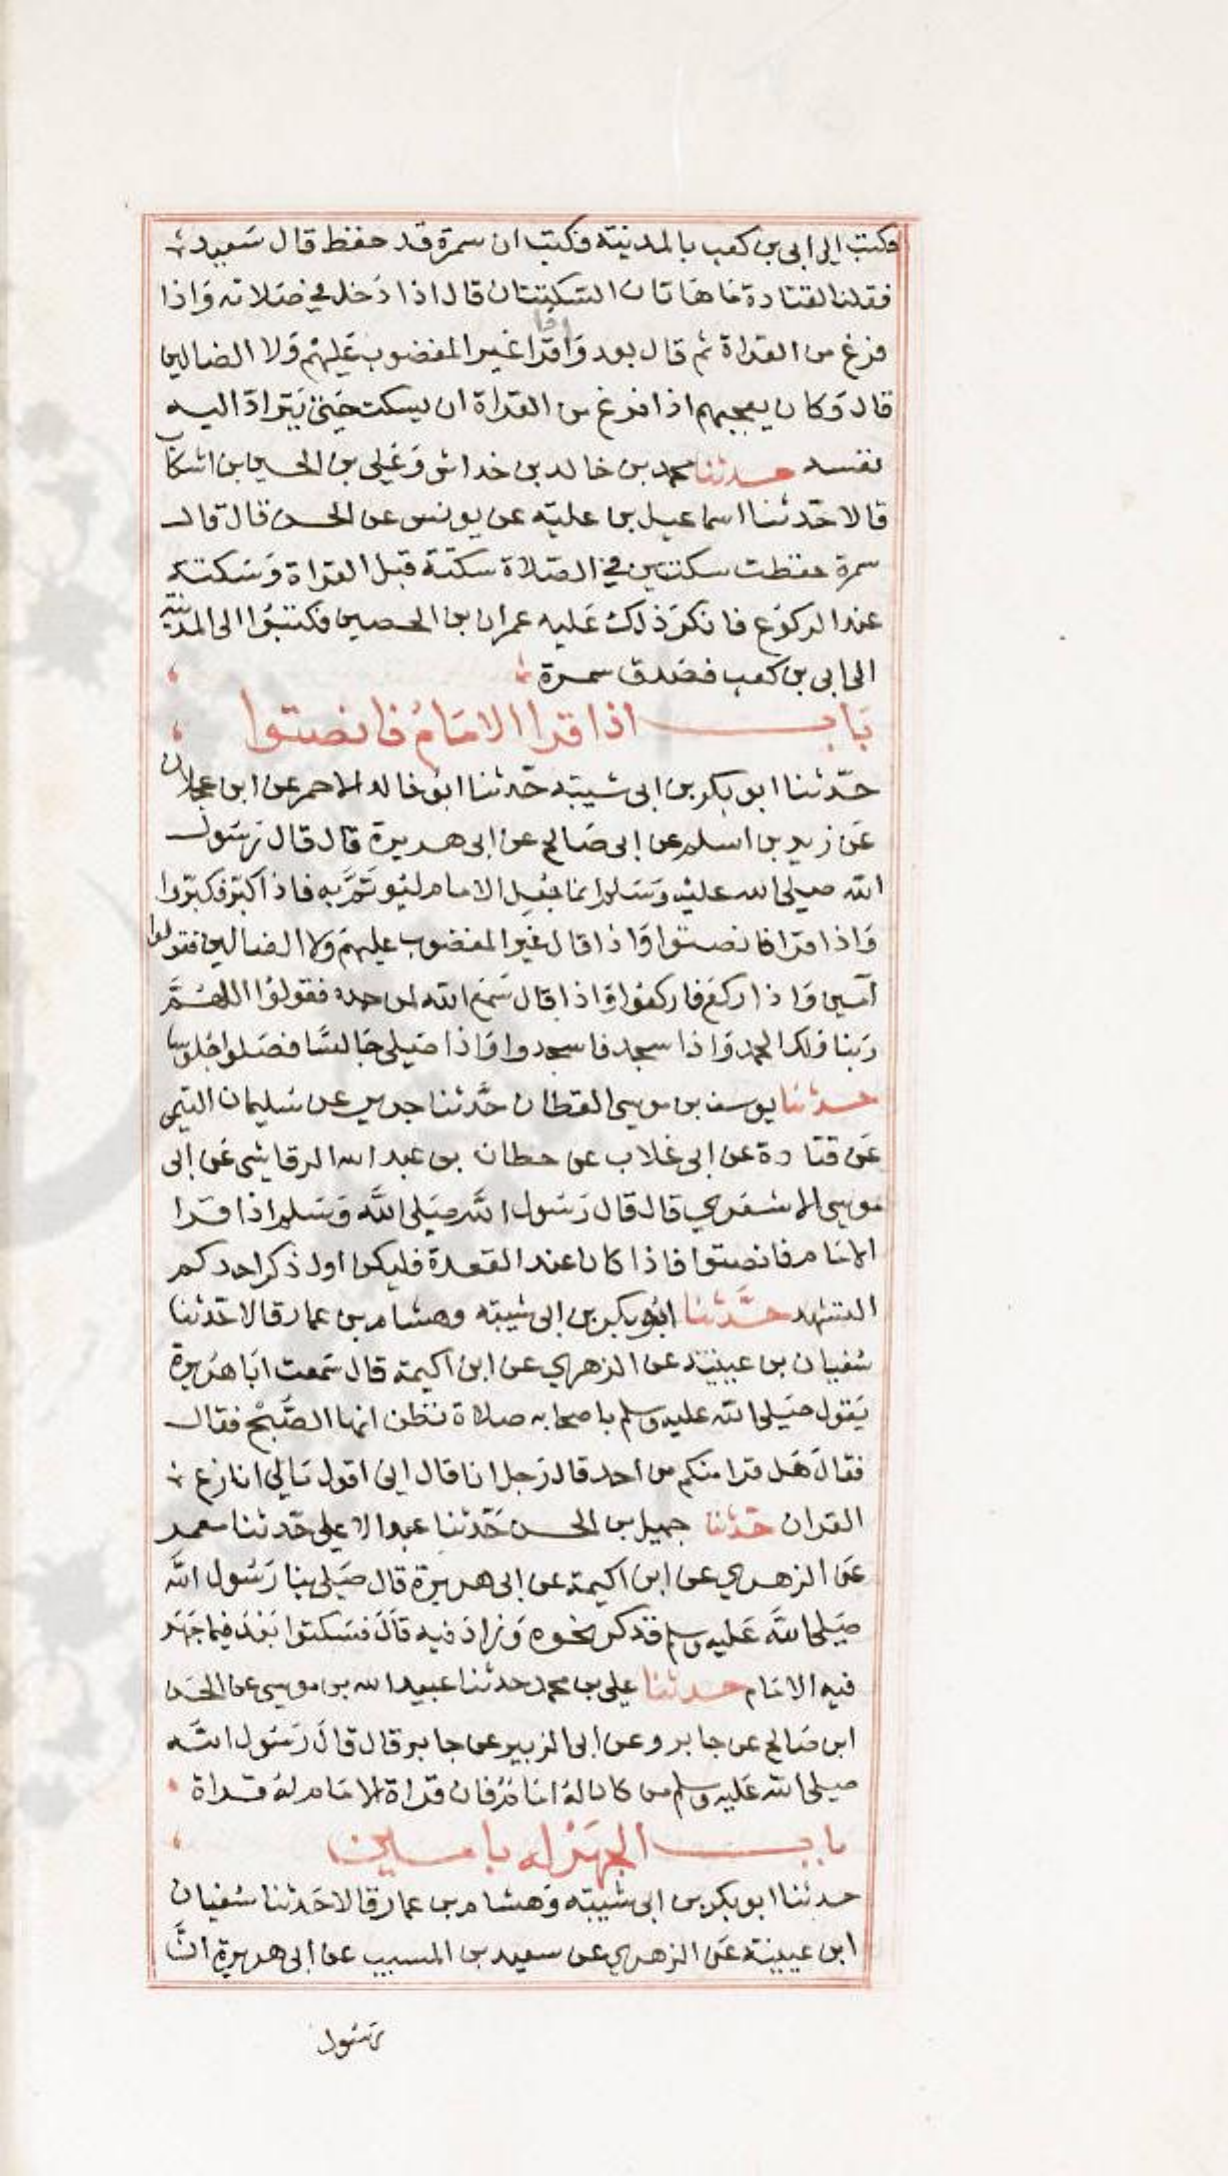 فكتب الى ابى بن كعب بالمدينة فكتب ان سمرة قد حفظ قال سَعيد
فقلنا لقتادة مَا هَاتان السّكتتان قال اذا دَخل في صَلاته وَاذا
فرغ من القراة ثم قال بعد وَاذا قرا غير المغضوب عَليهم وَلا الضالين
قال وَكان يعجبهم اذا فرغ من القراة ان يسكت حَتى يَترادّ اليه
نفسه حدثنا محمد بن خالد بن خداش وَعَلي بن الحسين بن اشكاب
قالا حَدّثنا اسماعيل بن علية عن يونس عن الحسن قال قال
سمرة حفظت سكتتين في الصّلاة سكتة قبل القراة وَسَكتة
عند الركوع فانكرَ ذلك عَليه عمران بن الحصين فكتبُوا الى المدينة
الى ابى بن كعب فصَدق سمرة
بَاب اذا قرا الامَامُ فانصتوا
حَدّثنا ابو بكر بن ابى شيبة حَدثنا ابو خالد الاحمر عن ابن عجلان
عَن زيد بن اسلم عن ابى صَالح عن ابى هريرة قال قال رَسُول
الله صلى الله عليه وَسَلم انما جُعِل الامام ليُوتَمَّ به فاذا كبّر فكبّروا
وَاذا قرا فانصتوا وَاذا قال غير المغضوب عليهم وَلا الضالين فقولوا
آمين وَاذا ركعَ فاركعُوا وَاذا قال سَمعَ الله لمن حمده فقولوُا اللهُمَّ
رَبنا وَلك الحمد وَاذا سجد فاسجدوا وَاذا صَلى جَالسًا فصَلوا جلوسا
حدثنا يوسف بن موسى القطان حَدَّثنا جرير عن سُليمان التيمي
عَن قتادة عن ابى غلاب عن حطان بن عبد الله الرقاشي عَن ابى
موسى الاشعَري قال قال رَسُول اللَّه صَلى اللَّه وَسَلم اذا قرا
الامَام فانصتوا فاذا كان عند القعدة فليكن اول ذكر احدكم
التشهد حدَّثنا ابُو بكر بن ابى شيبة وهشام بن عمار قالا حَدثنا
سُفيان بن عيينة عن الزهري عن ابن اكيمة قال سَمعت ابَا هُريرة
يَقول صَلى الله عليه وسلم باصحابه صلاة نظن انها الصُّبْح فقال
فقالَ هَل قرا منكم من احد قال رَجل انا قال انى اقول مَالي انازع
القران حَدثنا جميل بن الحسن حَدّثنا عبد الاعلى حَدثنا معمر
عَن الزهري عن ابن اكيمة عن ابى هريرة قال صَلى بنا رَسُول الله
صَلى اللهَ عَليه وسلم فذكر نحوه وَزادَ فيه قالَ فسَكتوا بَعْدَ فيمَا جَهَر
فيه الامَام حدثنا علي بن محمد حدثنا عبيد الله بن موسى عن الحسن
ابن صَالح عن جابر وعن ابى الزبير عن جابر قال قالَ رَسُول اللَّه
صلى الله عَليه وسلم من كان لهُ امَامٌ فان قراة الامَام لهُ قراة
باب الجهرْ بامين
حدثنا ابو بكر بن ابى شيبة وَهشام بن عمار قالا حَدثنا سُفيان
ابن عيينة عَن الزهري عن سعيد بن المسيب عن ابى هريرة انَّ
رَسُول